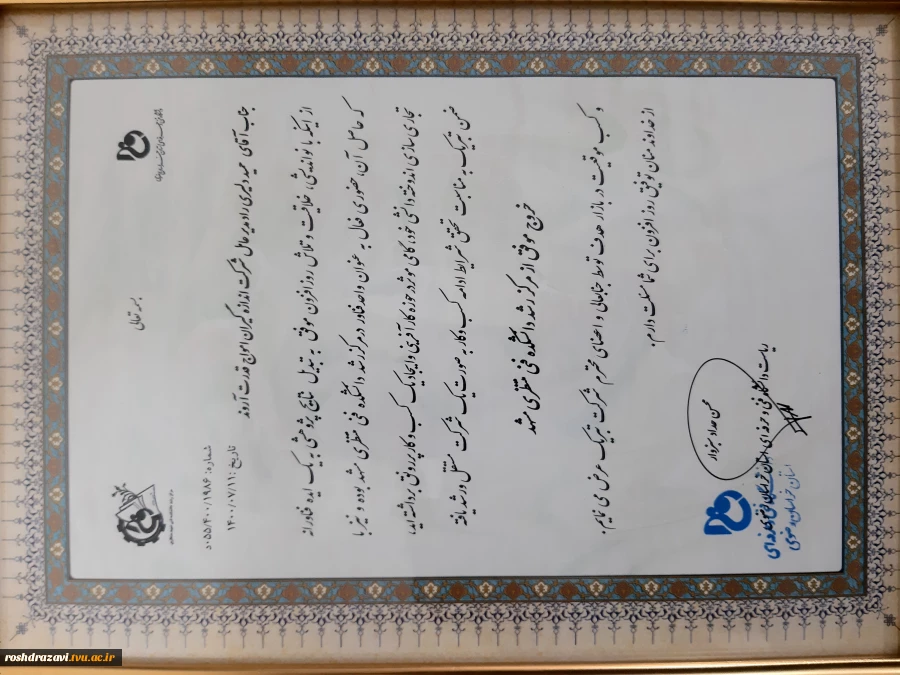 بسمه تعالی
شماره: ۰۵۵/۴۰۰/۱۹۸۶د
تاریخ: ۱۴۰۰/۰۷/۱۱
جناب آقای حمید دلیری راد مدیرعامل شرکت اندازه گیران امواج قدرت آروند
از اینکه با نواندیشی، خلاقیت و تلاش روزافزون موفق به تبدیل نتایج پژوهشی به یک ایده فناورانه
که حاصل آن، حضوری فعال به عنوان واحد فناور در مرکز رشد دانشکده فنی منتظری مشهد بوده و نیز با
تجاری سازی اندوخته دانشی خود، گامی موثر در حوزه کارآفرینی و ایجاد یک کسب و کار پررونق برداشته اید،
ضمن تبریک به مناسبت تحقق شرایط ادامه کسب و کار به صورت یک شرکت مستقل و رشد یافته
خروج موفق از مرکز رشد دانشکده فنی منتظری مشهد
و کسب موفقیت در بازار هدف توسط جنابعالی و اعضای محترم شرکت تبریک عرض می نمایم.
از خداوند منان توفیق روز افزون برای شما مسئلت دارم.
محسن حداد سبزوار
ریاست دانشگاه فنی و حرفه ای استان خراسان رضوی
استان خراسان رضوی
roshdrazavi.tvu.ac.ir